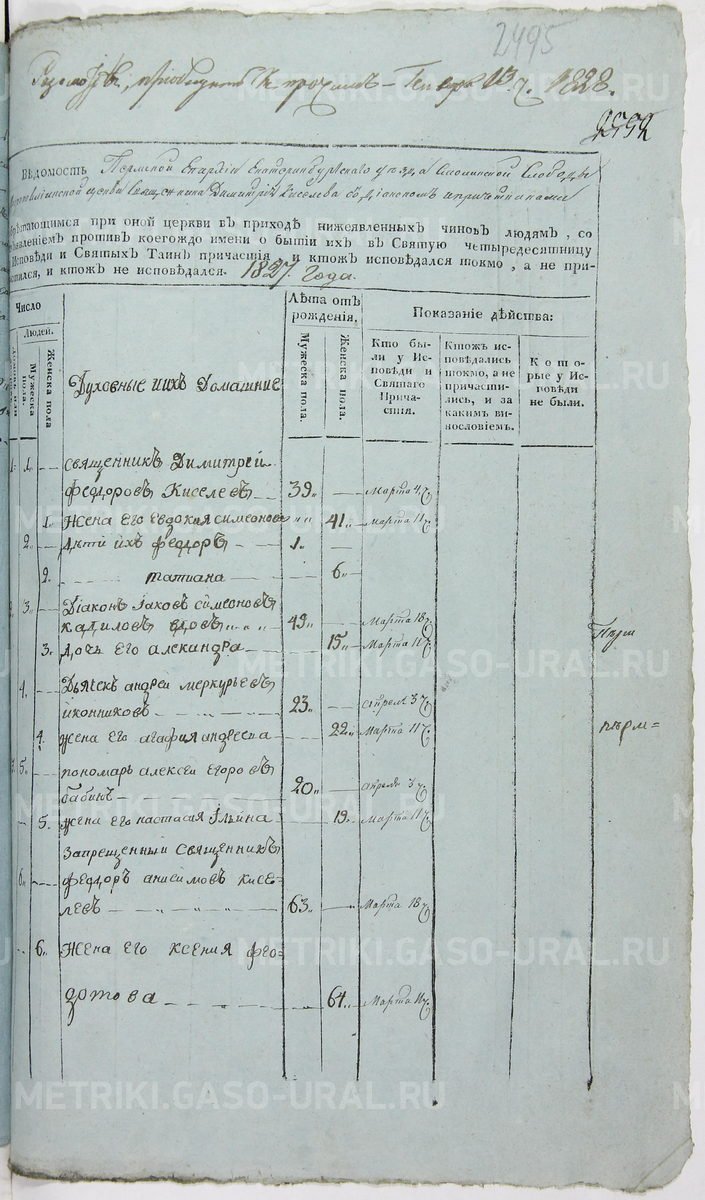 2495
Генваря 13 ч. 1828.
Вѣдомость Пермской Епархіи Екатеринбургскаго уезда Слободы
церкви Священника Димитрія Киселева съ діакономъ и причетниками
обрѣтающимся при оной церкви въ приходѣ нижеявленныхъ чиновъ людямъ, со
изъявленіемъ противъ коегождо имени о бытіи ихъ въ Святую четыредесятницу
у Исповѣди и Святыхъ Таинъ причастія и ктожъ исповѣдался токмо, а не при-
частился, и ктожъ не исповѣдался. 1827. Года.
Число
Людей.
Мужеска пола.
Женска пола
Духовные и ихъ Домашние
Лѣта отъ рожденія.
Мужеска пола.
Женска пола.
Показаніе дѣйства:
Кто бы-
ли у Ис-
повѣди и
Святаго
Прича-
стія.
Ктожъ ис-
повѣдались
токмо, а не
причасти-
лись, и за
какимъ ви-
нословіемъ.
Кото-
рые у Ис-
повѣди
не были.
1. 1. Священникъ Димитрей
Федоровъ Киселевъ 39. Марта 4. ч
1. Жена его Евдокия Симеонова 41. Марта 11 ч
2. Дѣти ихъ Федоръ 1.
2. Татиана 6.
3. Діаконъ Іаковъ Симеоновъ
Кадиловъ вдовъ 49. Марта 18 ч
3. Дочь его Александра 15. Марта 11 ч
4. Дьячекъ Андреи Меркурьевъ
Иконниковъ 23. Апреля 3 ч
4. Жена его Агафия Андреева 22. Марта 11 ч
5. Пономарь Алексеи Егоровъ
Бабинъ 20. Апреля 3 ч
5. Жена его Настасия Ильина 19. Марта 11 ч
Запрещенныи Священникъ
6. Федоръ Анисимовъ Кисе-
левъ 63. Марта 18 ч
6. Жена его Ксения Фео-
дотова 64. Марта 11 ч.
METRIKI.GASO-URAL.RU